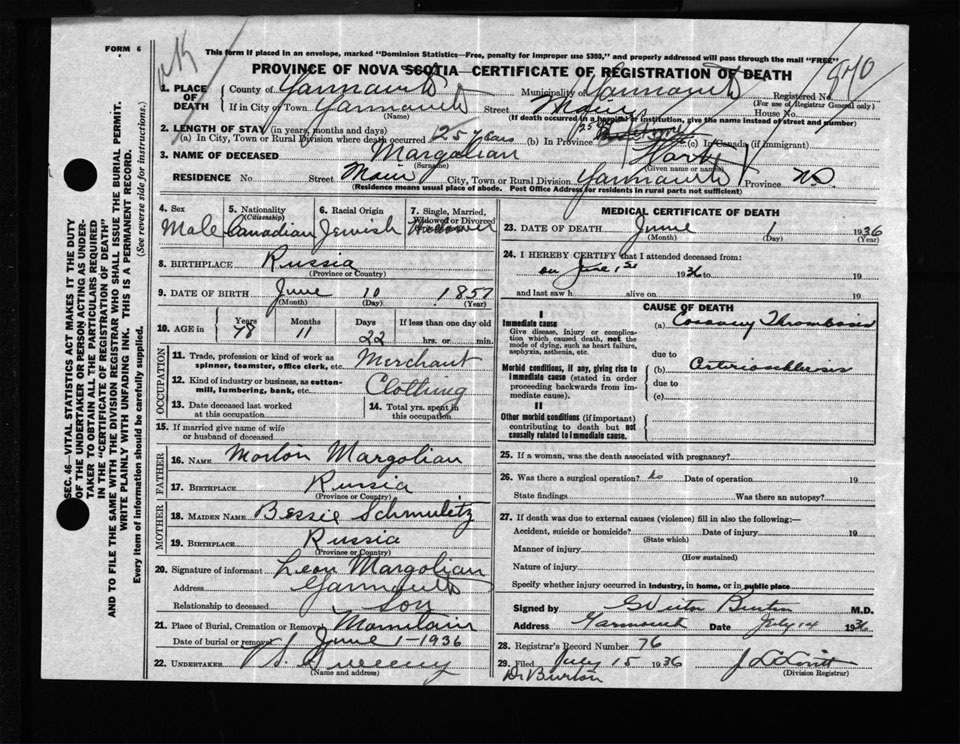 FORM 6
This form if placed in an envelope, marked "Dominion Statistics—Free, penalty for improper use $300," and properly addressed will pass through the mail "FREE"
PROVINCE OF NOVA SCOTIA—CERTIFICATE OF REGISTRATION OF DEATH
1. PLACE OF DEATH
County of Yarmouth Municipality of Yarmouth Registered No.
(For use of Registrar General only)
If in City or Town Yarmouth Street Main House No.
(Name) (If death occurred in a hospital or institution, give the name instead of street and number)
2. LENGTH OF STAY (in years, months and days)
(a) In City, Town or Rural Division where death occurred 25 years (b) In Province 25 (c) In Canada (if immigrant)
3. NAME OF DECEASED Margolian Harry
(Surname) (Given name or names)
RESIDENCE No Street Main City, Town or Rural Division Yarmouth Province N.S.
(Residence means usual place of abode. Post Office Address for residents in rural parts not sufficient)
4. Sex Male
5. Nationality (Citizenship) Canadian
6. Racial Origin Jewish
7. Single, Married, Widowed or Divorced Widower
8. BIRTHPLACE Russia
(Province or Country)
9. DATE OF BIRTH June 10 1857
(Month) (Day) (Year)
10. AGE in Years 78 Months 11 Days 22 If less than one day old hrs. or min.
OCCUPATION
11. Trade, profession or kind of work as spinner, teamster, office clerk, etc. Merchant
12. Kind of industry or business, as cotton-mill, lumbering, bank, etc. Clothing
13. Date deceased last worked at this occupation
14. Total yrs. spent in this occupation
15. If married give name of wife or husband of deceased
FATHER
16. NAME Morton Margolian
17. BIRTHPLACE Russia
(Province or Country)
MOTHER
18. MAIDEN NAME Bessie Schmuletz
19. BIRTHPLACE Russia
(Province or Country)
20. Signature of informant Leon Margolian
Address Yarmouth
Relationship to deceased Son
21. Place of Burial, Cremation or Removal Mountain
Date of burial or removal June 1-1936
22. UNDERTAKER Sweeny
(Name and address)
MEDICAL CERTIFICATE OF DEATH
23. DATE OF DEATH June 1 1936
(Month) (Day) (Year)
24. I HEREBY CERTIFY that I attended deceased from:
on June 1st 1936 to 19
and last saw h alive on 19
CAUSE OF DEATH
I
Immediate cause
Give disease, injury or complication which caused death, not the mode of dying, such as heart failure, asphyxia, asthenia, etc.
(a) Coronary Thrombosis
due to
Morbid conditions, if any, giving rise to immediate cause (stated in order proceeding backwards from immediate cause).
(b) Arteriosclerosis
due to
(c)
II
Other morbid conditions (if important) contributing to death but not causally related to immediate cause.
25. If a woman, was the death associated with pregnancy?
26. Was there a surgical operation? No Date of operation 19
State findings Was there an autopsy?
27. If death was due to external causes (violence) fill in also the following:—
Accident, suicide or homicide? Date of injury 19
(State which)
Manner of injury
(How sustained)
Nature of injury
Specify whether injury occurred in industry, in home, or in public place
Signed by G Victor Burton M.D.
Address Yarmouth Date July 14 1936
28. Registrar's Record Number 76
29. Filed July 15 1936
(Division Registrar)
Dr Burton
SEC. 46—VITAL STATISTICS ACT MAKES IT THE DUTY
OF THE UNDERTAKER OR PERSON ACTING AS UNDER-
TAKER TO OBTAIN ALL THE PARTICULARS REQUIRED
IN THE "CERTIFICATE OF REGISTRATION OF DEATH"
AND TO FILE THE SAME WITH THE DIVISION REGISTRAR WHO SHALL ISSUE THE BURIAL PERMIT.
WRITE PLAINLY WITH UNFADING INK. THIS IS A PERMANENT RECORD.
Every item of information should be carefully supplied. (See reverse side for instructions.)